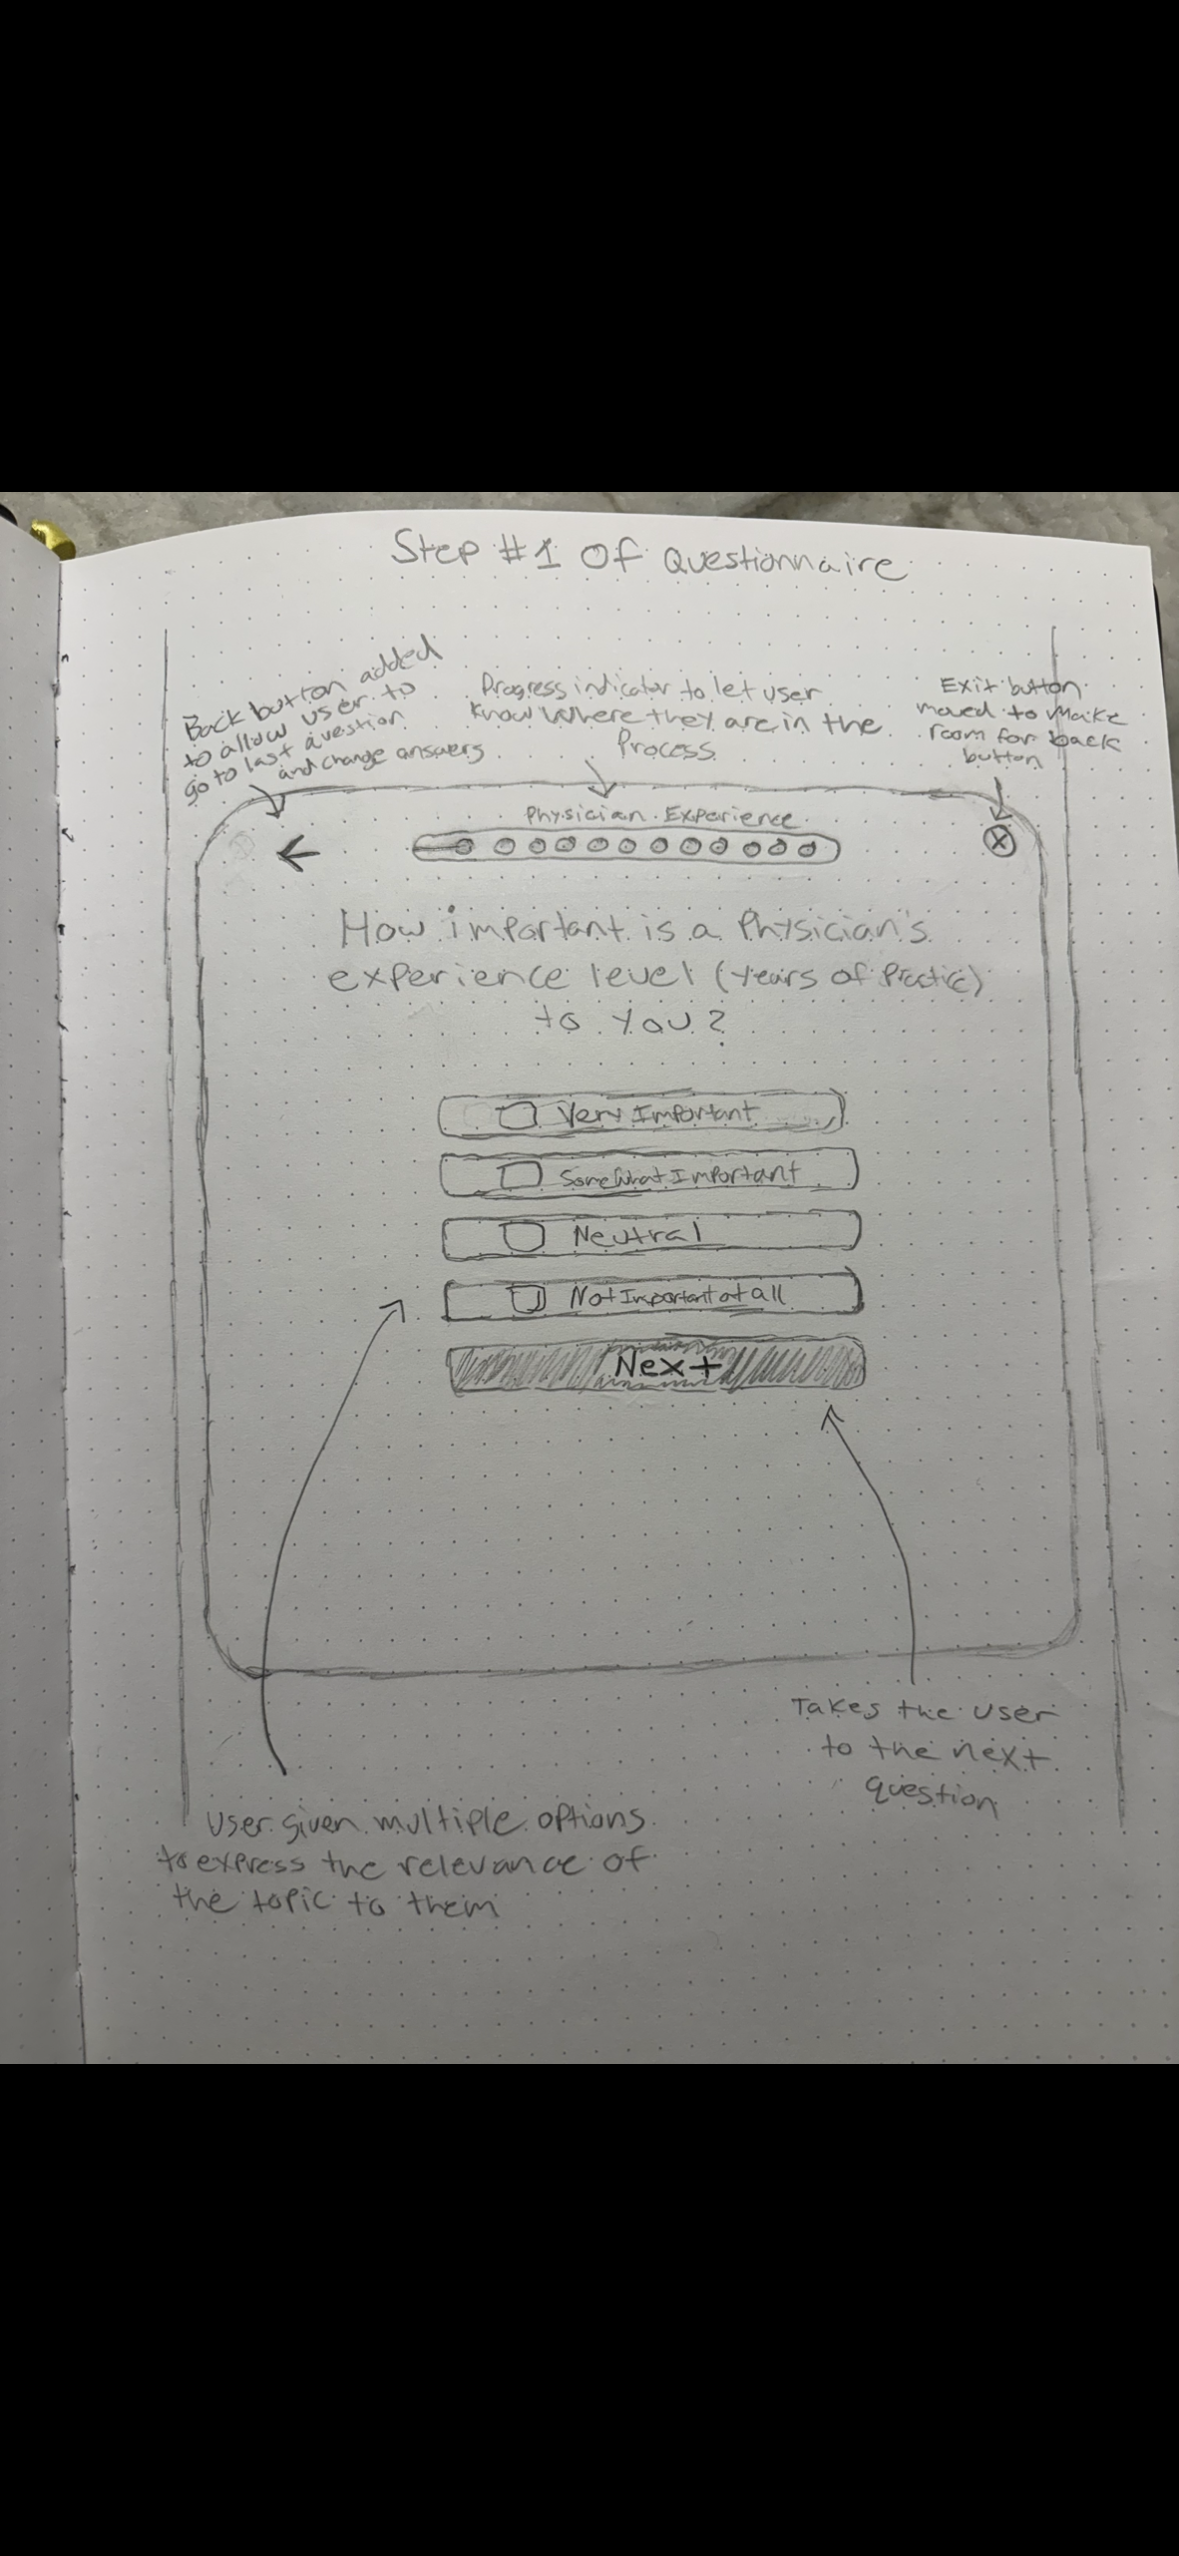 Step #1 Of Questionnaire
Back button added
to allow user to
go to last question
and change answers
Progress indicator to let user
know where they are in the
Process
Exit button
moved to make
room for back
button
Physician Experience
How important is a Physician's
experience level (years of Practice)
to you?
Very Important
Somewhat Important
Neutral
Not Important at all
Next
Takes the user
to the next
question
User given multiple options
to express the relevance of
the topic to them